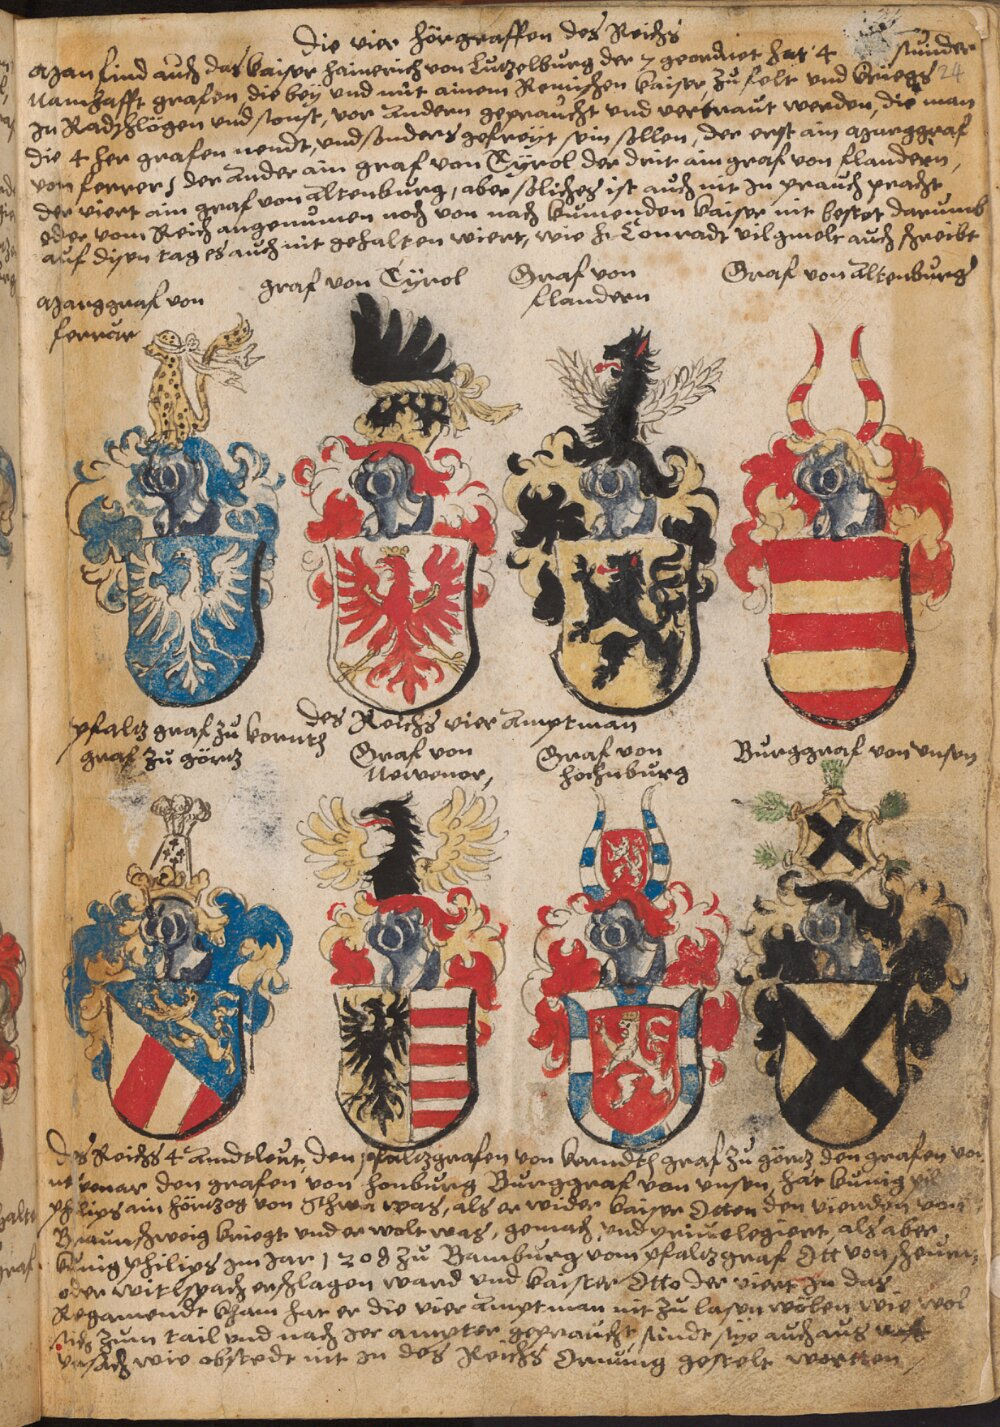 Die vier hörgraffen des Reichs
Man find auch das kaiser Hainerich von Lutzelburg der 7 geordnet hat 4 sunder
24
Namhafft grafen die bey und mit ainem Remischen kaiser zu felt und kriegs
In Radschlögen und sonst, vor andern gepraucht und vertraut werden, die man
die 4 her grafen nendt, und sonders gefreyt sein sollen, der erst ain Marggraf
von ferrer, der ander ain graf von Tyrol der drit ain graf von flandern,
der viert ain graf von Altenburg, aber soliches ist auch nit In prauch pracht
oder vom Reich angenumen noch von nach kumenden kaiser nit bestet darumb
auf disen tag es auch nit gehalten wiert, wie h. Conradt vilgmelt auch schreibt
Marggraf von
ferrär
graf von Tyrol
Graf von
flandern
Graf von Altenburg
des Reichs vier Amptman
pfaltz graf zu kernth
graf zu görtz
Graf von
Newenor,
Graf von
hochnburg
Burggraf von unsen
des Reichs 4 Amdtleut, den pfaltzgrafen von kerndth graf zu görtz den grafen von
nuenar den grafen von honburg Burggraf von unsen, hat künig phil
philips ain hörtzog von Schwa was, als er wider kaiser Otten den vierdten von
Braunschweig kriegt und er wolt was, gemach und priuelegiert, als aber
künig philips Im Jar 1208 zu Bamburg vom pfaltzgraf Ott von scheurn
oder witlspach erschlagen ward und kaister Otto der viert In das
Regamendt kham hat er die vier Amptman nit zu lasen wölen wie wol
sich zum tail und nach Jer ampter gepraucht, sindt sye auch aus
ursach wie obstedt nit In des Reichs Ornung gestelt wortten